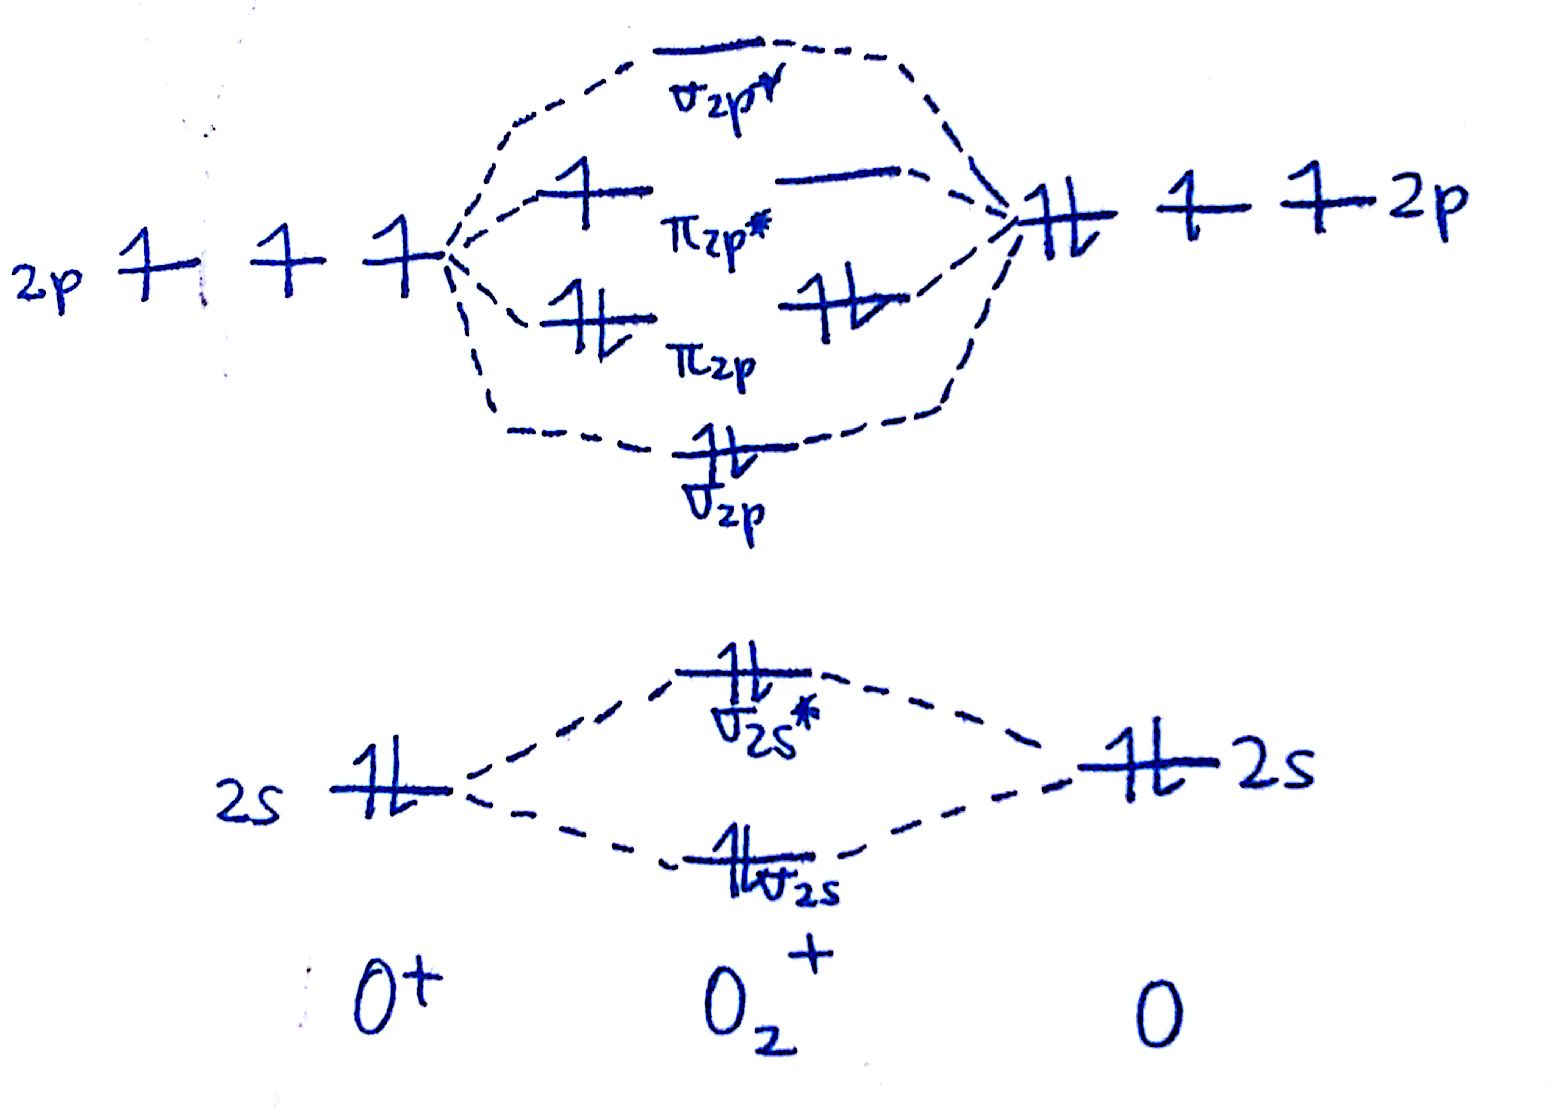 σ2p*
2p 2p
π2p*
π2p
σ2p
σ2s*
2s 2s
σ2s
O+ O2+ O